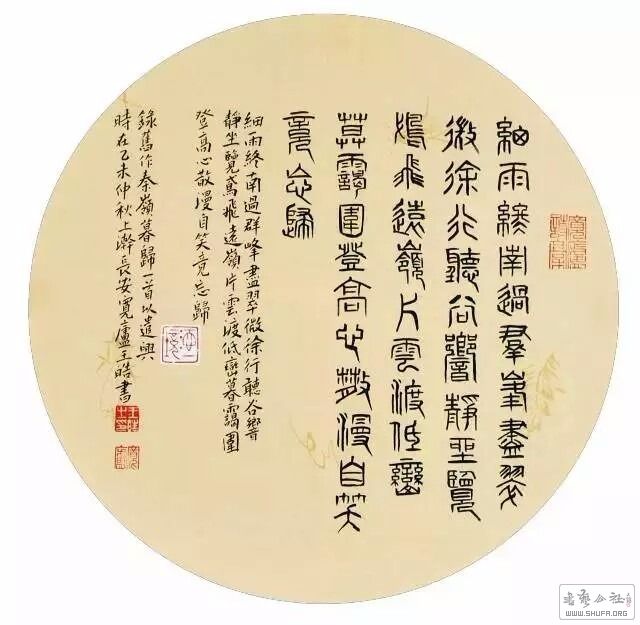 細雨終南過羣峯盡翠
微徐行聽谷響靜坐覽
鳶飛遠嶺片雲渡低巒
暮靄圍登高心敞漫自笑
竟忘歸
細雨終南過群峰盡翠微徐行聽谷響
靜坐覽鳶飛遠嶺片雲渡低巒暮靄圍
登高心敞漫自笑竟忘歸
錄舊作秦嶺暮歸一首以遣興
時在乙未仲秋上澣長安寬廬王晧書
書藝公社
WWW.SHUFA.ORG